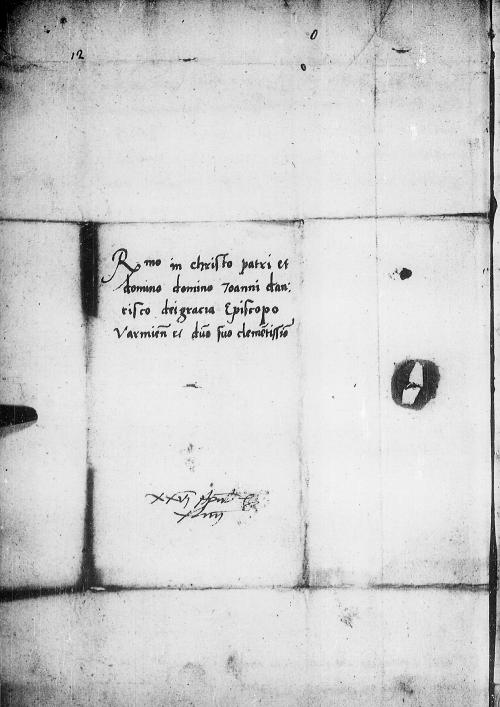 12
0
0
Rmo in christo patri et
domino domino Ioanni dan:
tisco dei gracia Episcopo
Varmien̄ et dn̄o suo clemētissīo
XXVI